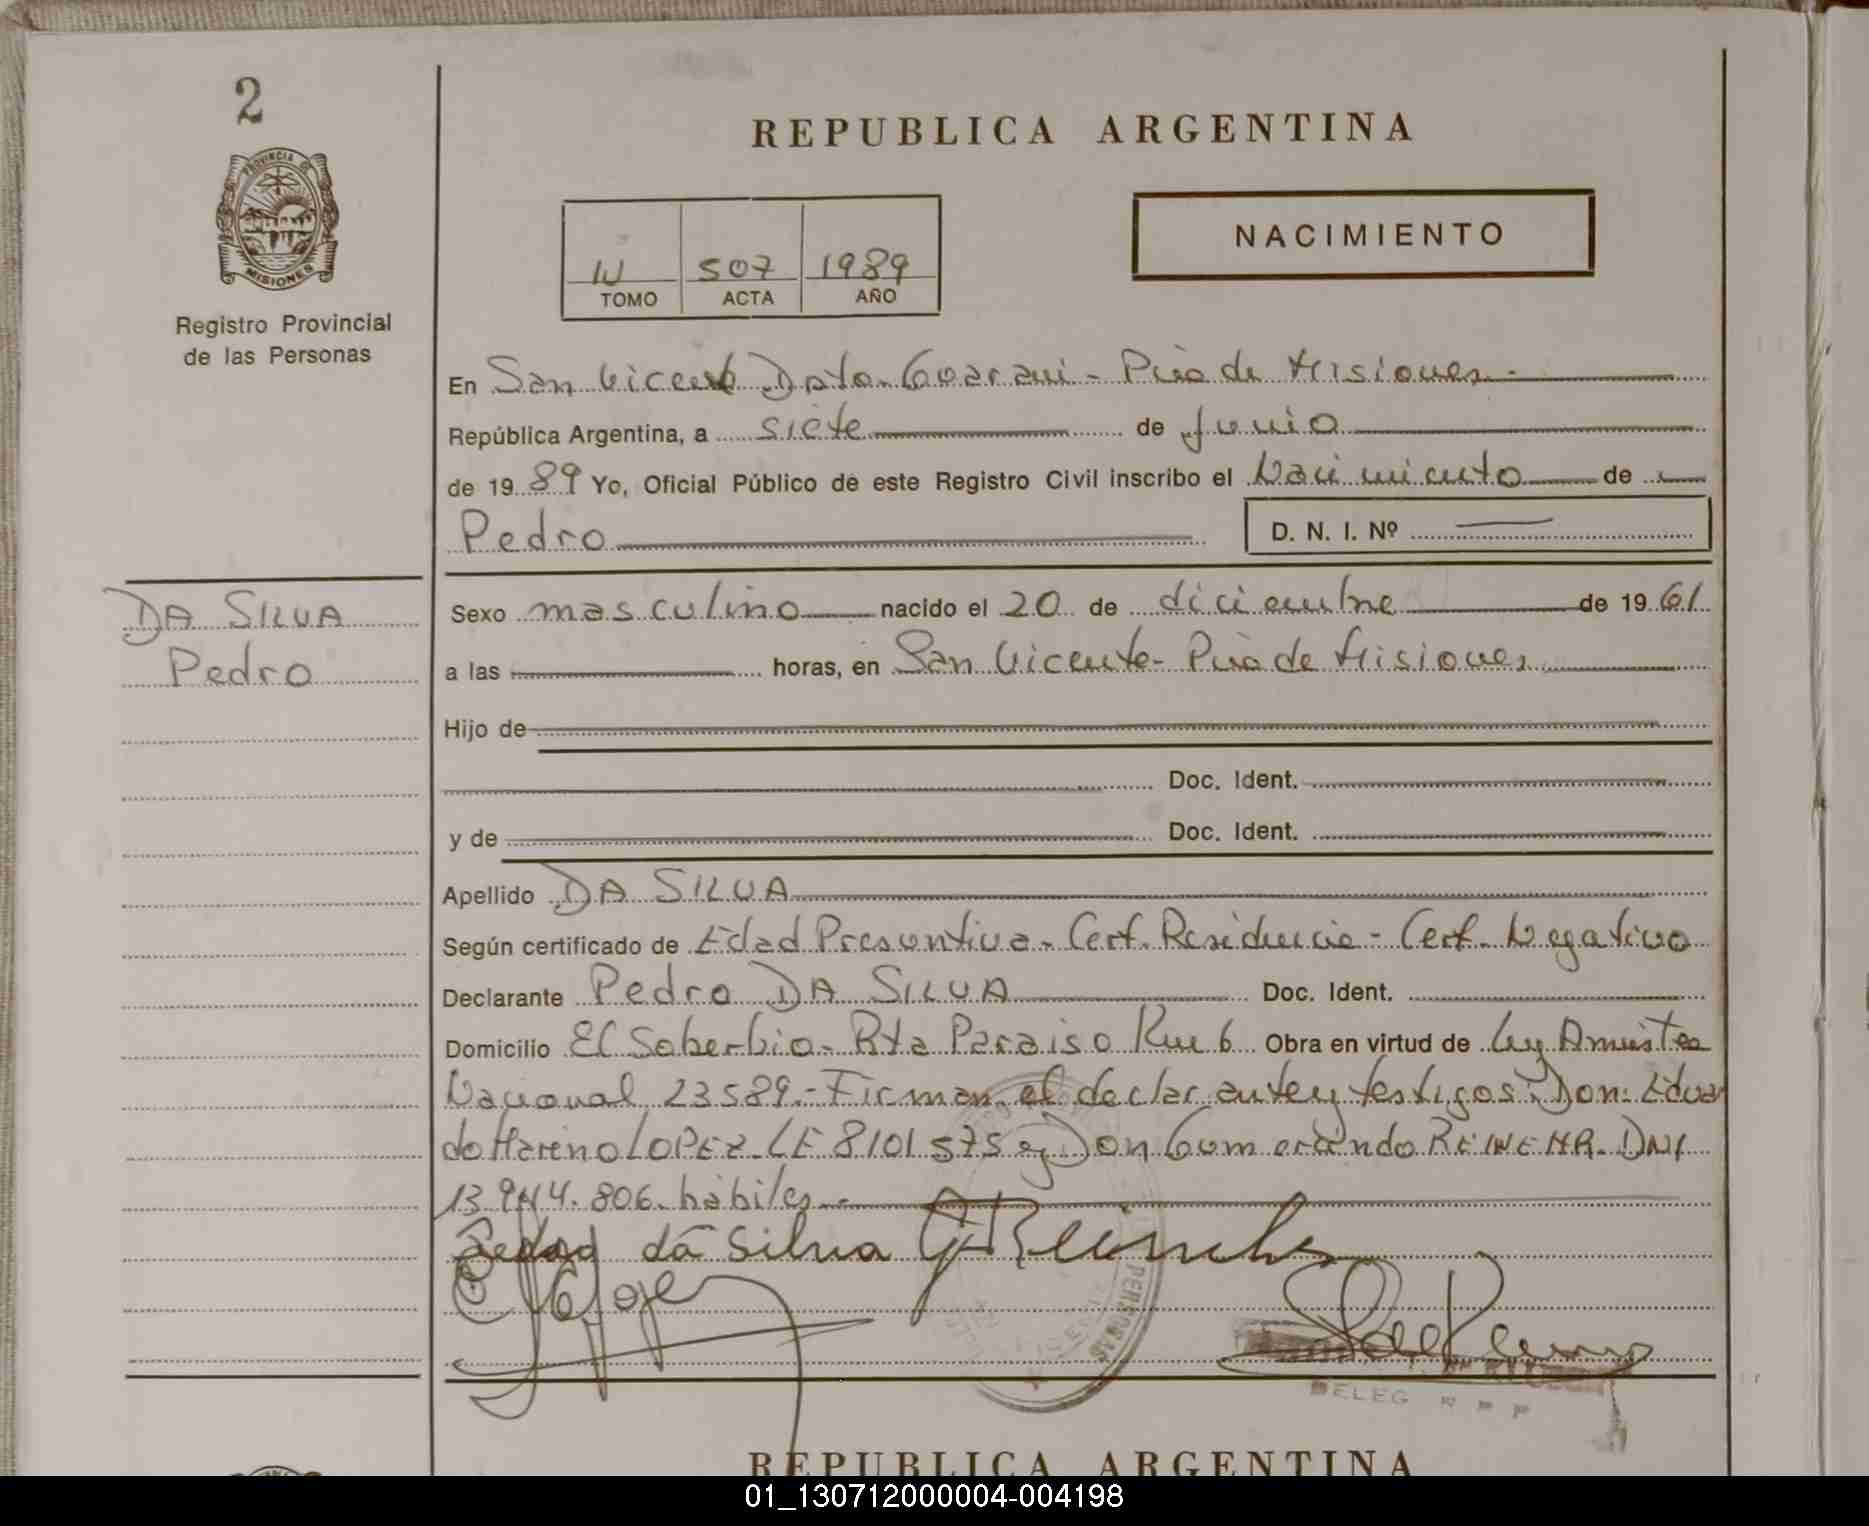 2
REPUBLICA ARGENTINA
PROVINCIA DE
MISIONES
Registro Provincial
de las Personas
NACIMIENTO
IV 507 1989
TOMO ACTA AÑO
En San Vicente Dpto. Guarani - Pcia de Misiones.-
República Argentina, a siete de Junio
de 1989 Yo, Oficial Público de este Registro Civil inscribo el Nacimiento de
Pedro D. N. I. Nº
DA SILVA
Pedro
Sexo masculino nacido el 20 de diciembre de 1961
a las horas, en San Vicente - Pcia de Misiones
Hijo de
Doc. Ident.
y de Doc. Ident.
Apellido DA SILVA
Según certificado de Edad Presuntiva - Cert. Residencia - Cert. Negativo
Declarante Pedro DA SILVA Doc. Ident.
Domicilio El Soberbio - Rta Paraiso Km 6 Obra en virtud de Ley Amnistea
Nacional 23589.- Firman el declarante y testigos: Don: Eduar
do Mareno LOPEZ. LE 8101575 y Don Gumercindo REINEHR. DNI
13.944.806. hábiles.-
Pedro da Silva
PERSONAS
DELEG R P P
REPUBLICA ARGENTINA
01_130712000004-004198